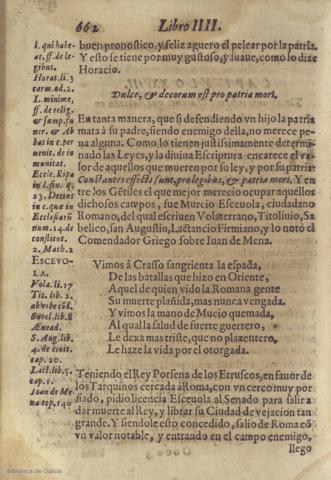 662 Libro IIII.
l. qui habe-
at. ff. de le-
gibus.
Horat. li. 3
carm. od. 2.
L. minime,
ff. de relig.
& sump. fu
ner. & Ab
bas in c. per
uenit. de in
munitat.
Eccle. Ripa
in l. fin. q.
23. Decius
in c. qua in
Ecclesiarũ
num. 14. de
constit.
2. Mach. 2
ESCEVO-
LA.
Vola. li. 17
Tit. lib. 2.
ab vrbe cõd.
Sabel. lib. 8
Ænead.
S. Aug. lib.
4. de ciuit.
cap. 20.
Lact. lib. 5.
cap. 1.
Ioan de Me
na cop. 140
buen pronostico, y feliz aguero el pelear por la patria.
Y esto se tiene por muy gustoso, y suaue, como lo dize
Horacio.
Dulce, & decorum est pro patria mori.
En tanta manera, que si defendiendo vn hijo la patria
mata à su padre, siendo enemigo della, no merece pe-
na alguna. Como lo tienen justissimamente determi-
nado las Leyes, y la diuina Escritura encarece el va-
lor de aquellos que mueren por su ley, y por su patria:
Constantes effecti sunt, pro legibus, & patria mori. Y en
tre los Gẽtiles el que mejor merecio ocupar aquellos
dichosos campos, fue Murcio Esceuola, ciudadano
Romano, del qual escriuen Volaterrano, Titoliuio, Sa
belico, san Augustin, Lactancio Firmiano, y lo notó el
Comendador Griego sobre Iuan de Mena.
Vimos â Crasso sangrienta la espada,
De las batallas que hizo en Oriente,
Aquel de quien vido la Romana gente
Su muerte plañida, mas nunca vengada.
Y vimos la mano de Mucio quemada,
Al qual la salud de fuerte guerrero,
Le dexa mas triste, que no plazentero,
Le haze la vida por el otorgada.
Teniendo el Rey Porsena de los Etruscos, en fauor de
los Tarquinos cercada a Roma, con vn cerco muy por
fiado, pidio licencia Esceuola al Senado para salir a
dar muerte al Rey, y librar su Ciudad de vejacion tan
grande. Y siendole esto concedido, salio de Roma cõ
vn valor notable, y entrando en el campo enemigo,
llego
Biblioteca de Galicia